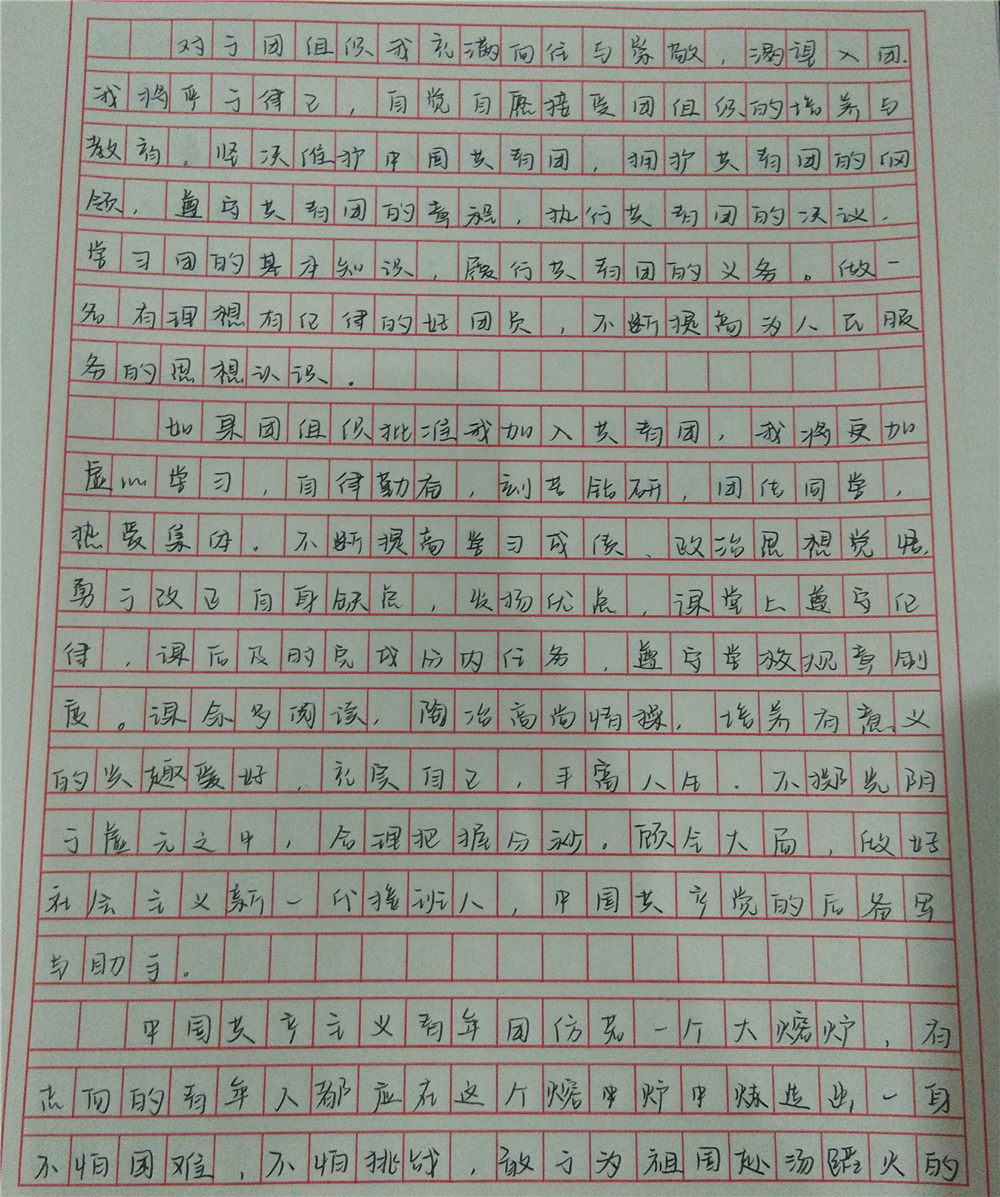 对于团组织我充满向往与崇敬，渴望入团.
我将严于律己，自觉自愿接受团组织的培养与
教育。坚决维护中国共青团，拥护共青团的纲
领，遵守共青团的章程，执行共青团的决议，
学习团的基本知识，履行共青团的义务。做一
名有理想有纪律的好团员，不断提高为人民服
务的思想认识。
如果团组织批准我加入共青团，我将更加
虚心学习，自律勤奋，刻苦钻研，团结同学，
热爱集体。不断提高学习成绩、政治思想觉悟，
勇于改正自身缺点，发扬优点，课堂上遵守纪
律，课后及时完成分内任务，遵守学校规章制
度。课余多阅读，陶冶高尚情操，培养有意义
的兴趣爱好，充实自己，丰富人生.不掷光阴
于虚无之中，合理把握分秒。顾全大局，做好
社会主义新一代接班人，中国共产党的后备军
与助手。
中国共产主义青年团仿若一个大熔炉，有
志向的青年人都应在这个熔中炉中炼造出一身
不怕困难，不怕挑战，敢于为祖国赴汤蹈火的